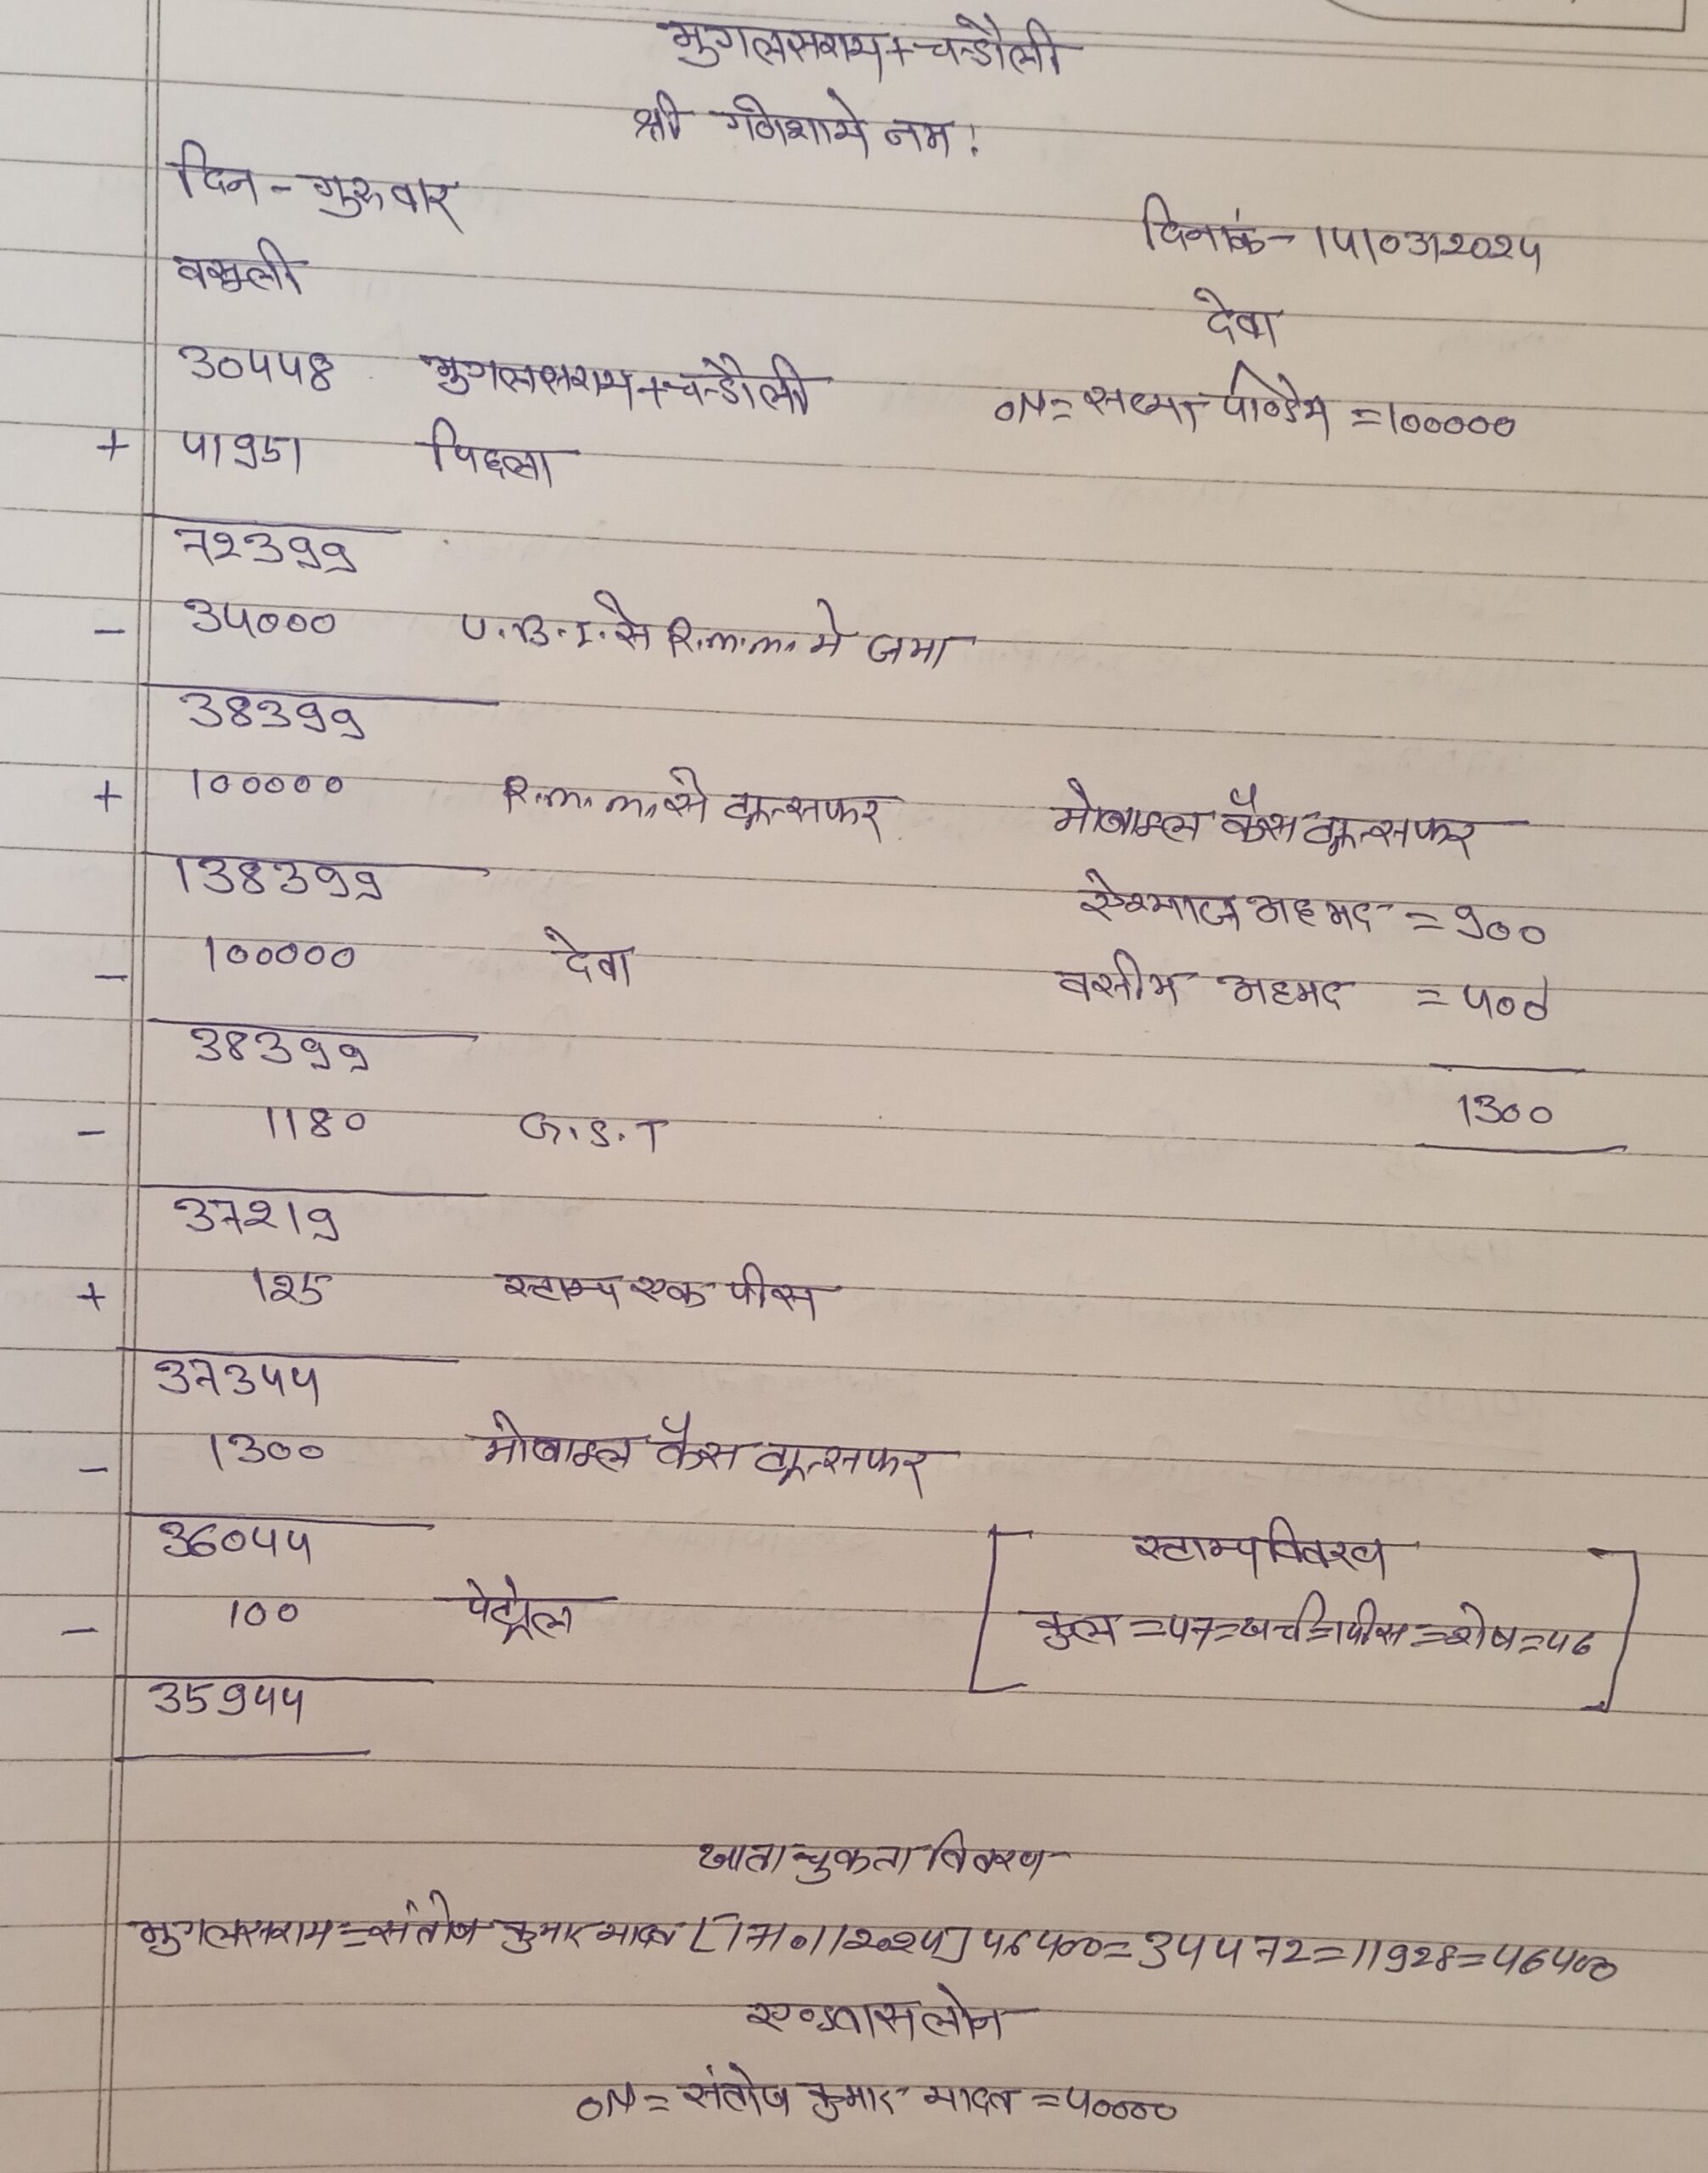 मुगलसराय+चन्डौली
श्री गणेशाये नम:
दिन - गुरुवार
दिनांक- 14/03/2024
वसुली
देवा
30448 मुगलसराय+चन्डौली
ON= सत्या पाण्डेय =100000
+ 41951 पिछला
72399
- 34000 U.B.I. से R.m.m. मे जमा
38399
+ 100000 R.m.m. से ट्रान्सफर
मोबाइल कैस ट्रान्सफर
138399
अहमद =900
- 100000 देवा
वसीम अहमद =400
38399
1300
- 1180 G.S.T
37219
+ 125 स्टाम्प एक पीस
37344
- 1300 मोबाइल कैस ट्रान्सफर
36044
[ स्टाम्प विवरण
- 100 पेट्रोल
कुल =47=खर्च=1पीस=शेष=46 ]
35944
खाता चुकता विवरण
मुगलसराय=संतोष कुमार यादव [17/01/2024] 46400=34472=11928=46400
एडवास लोन
ON= संतोष कुमार यादव =40000